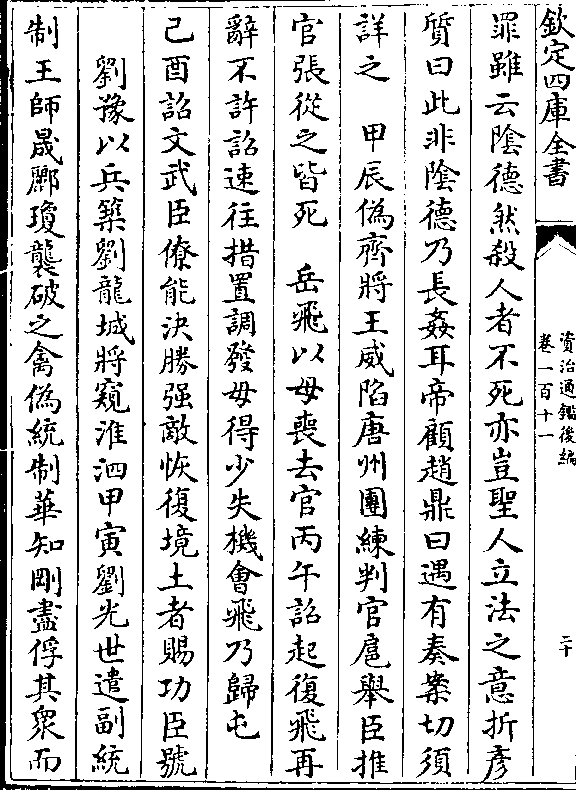 欽定四庫全書
資治通鑑後編
卷一百十一
二十
罪雖云隂德然殺人者不死亦豈聖人立法之意折彦
質曰此非隂德乃長姦耳帝顧趙鼎曰遇有奏案切須
詳之　甲辰偽齊將王威陷唐州團練判官扈舉臣推
官張從之皆死　岳飛以母喪去官丙午詔起復飛再
辭不許詔速往措置調發毋得少失機會飛乃歸屯
己酉詔文武臣僚能決勝强敵恢復境土者賜功臣號
劉豫以兵築劉龍城將窺淮泗甲寅劉光世遣副統
制王師晟酈瓊襲破之禽偽統制華知剛盡俘其衆而